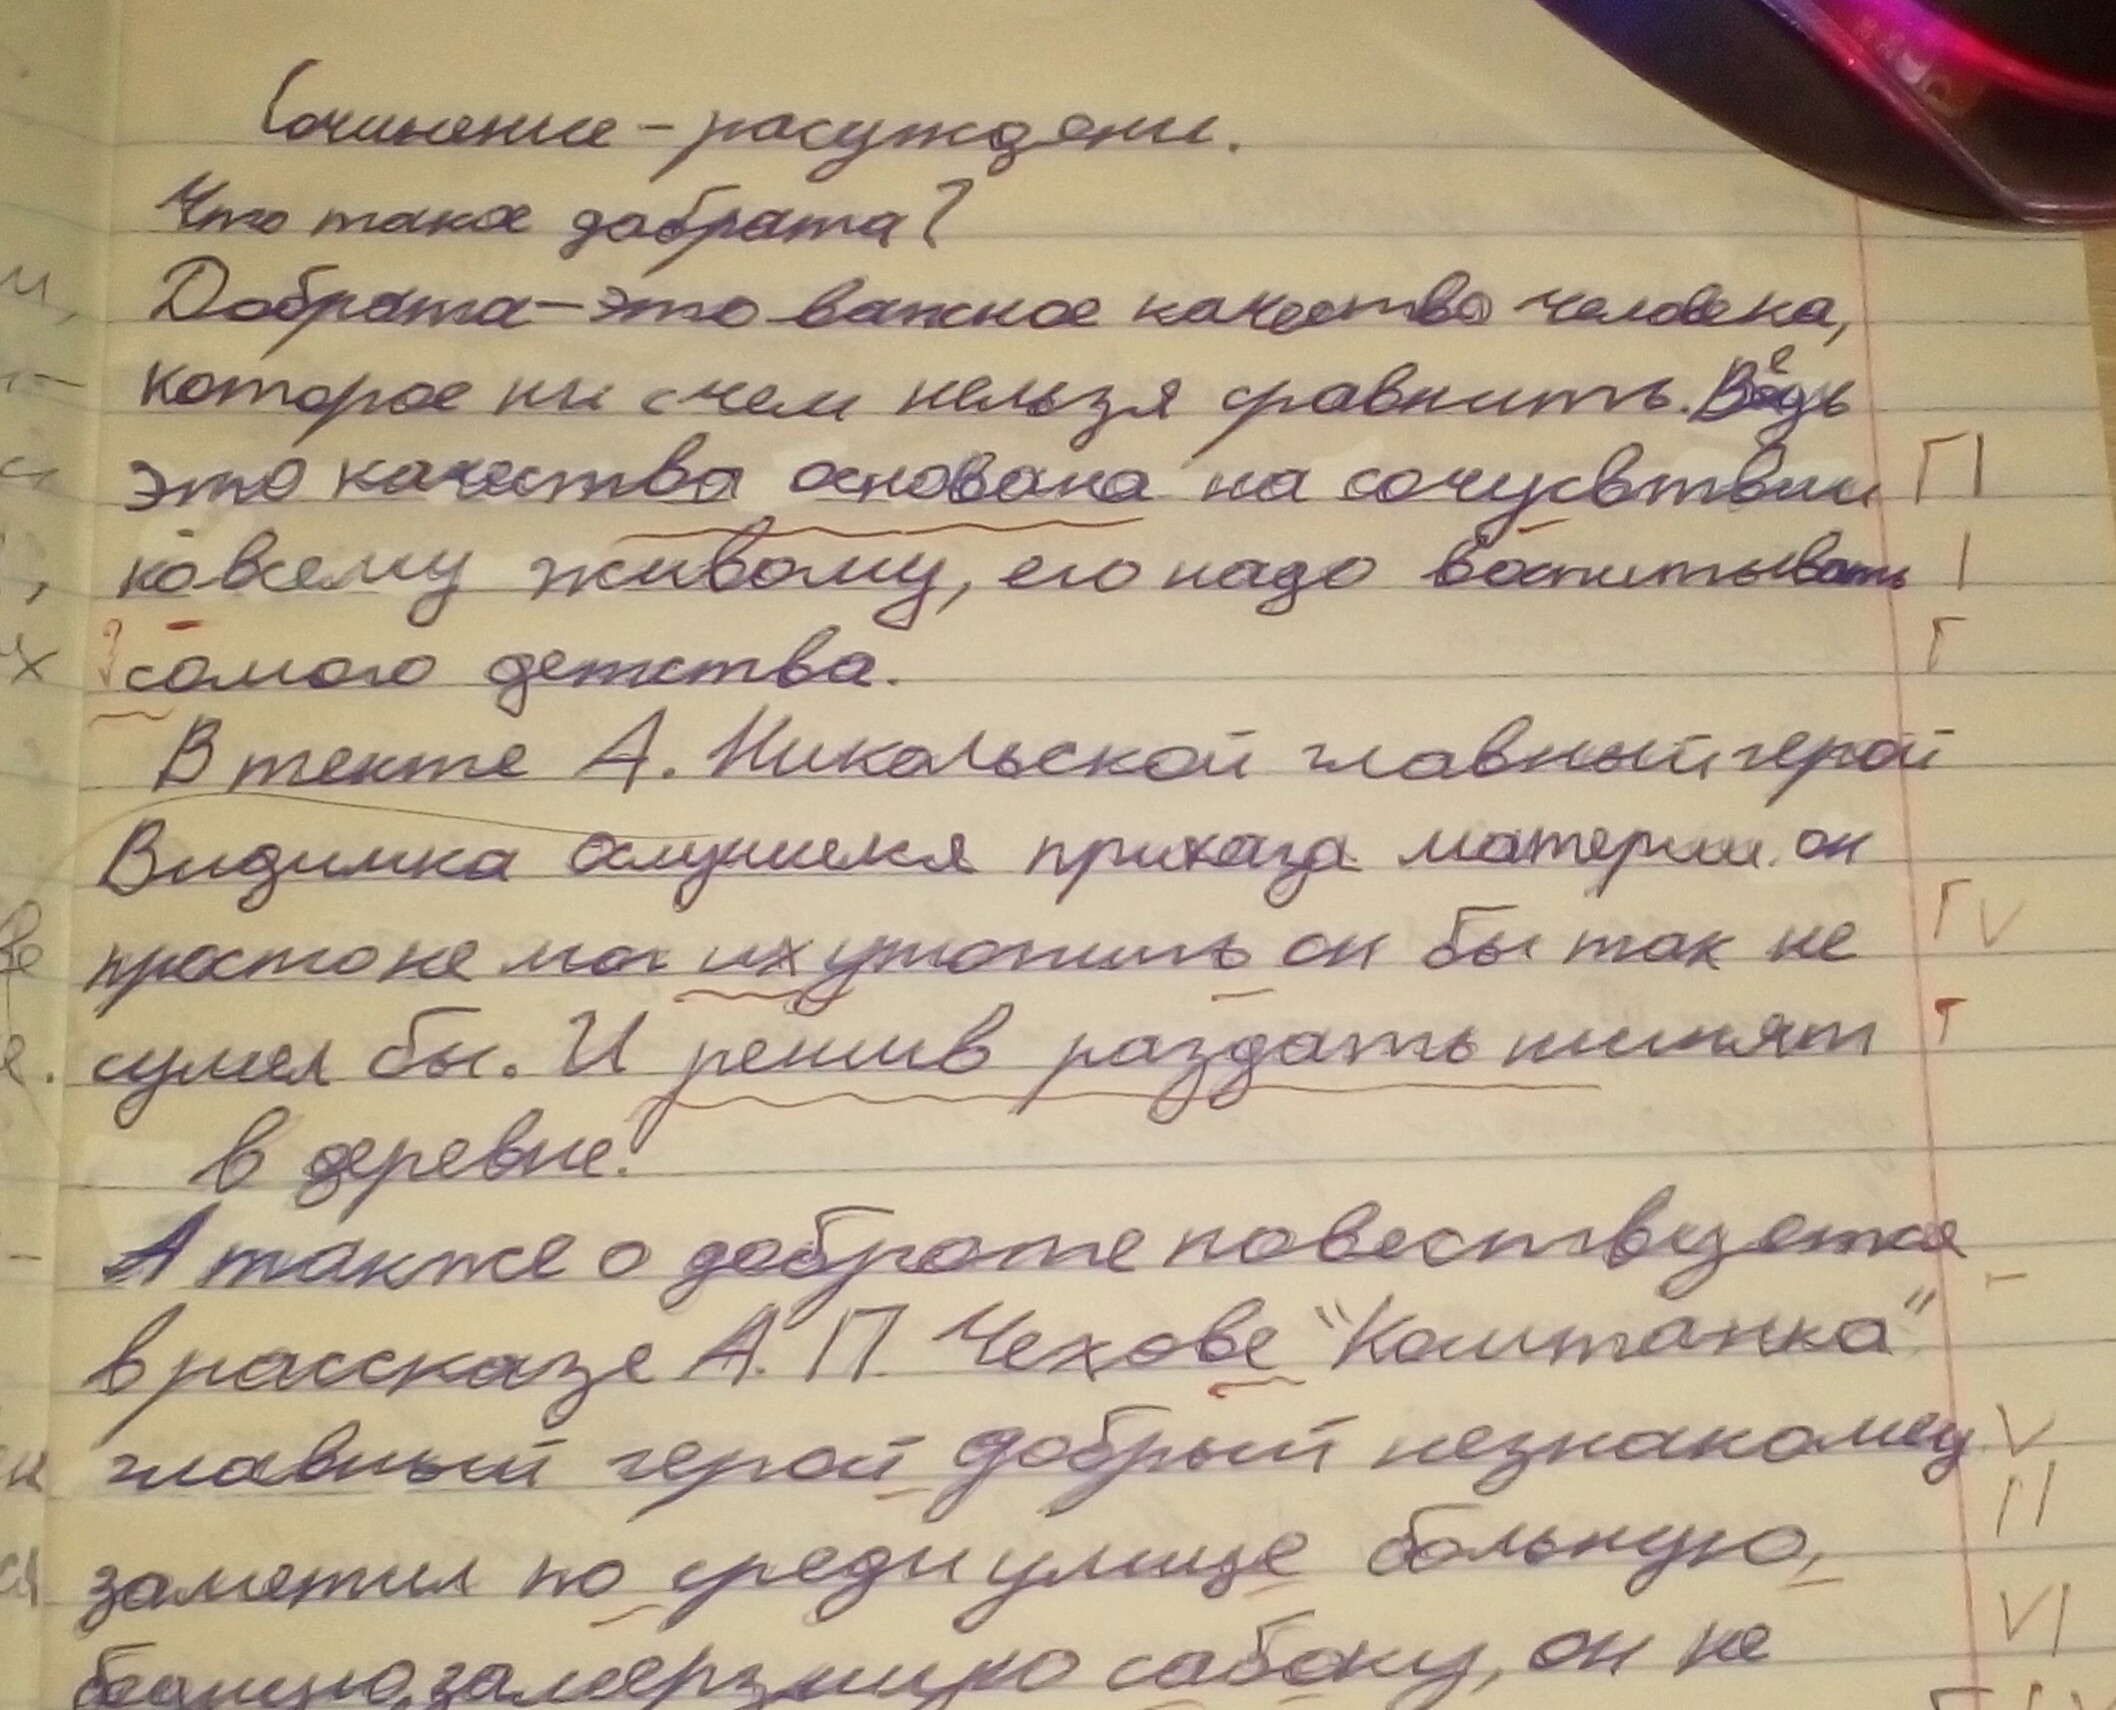 Сочинение - расуждени.
Что такое добрата?
Доброта - это важное качество человека,
которое ни с чем нельзя сравнить. Ведь
это качества основана на сочусвтвии
ковсему живому, его надо воспитывать
самого детства.
В тексте А. Никольской главный герой
Видимка ослушился приказа матери. он
просто не мог их утопить он бы так не
сумел бы. И решив раздать щинят
в деревне.
А также о доброте повествуется
в рассказе А. П. Чехове "Каштанка"
главный герой добрый незнакомец
заметил по среди улице больную,
бедную, замерзшую сабоку, он не